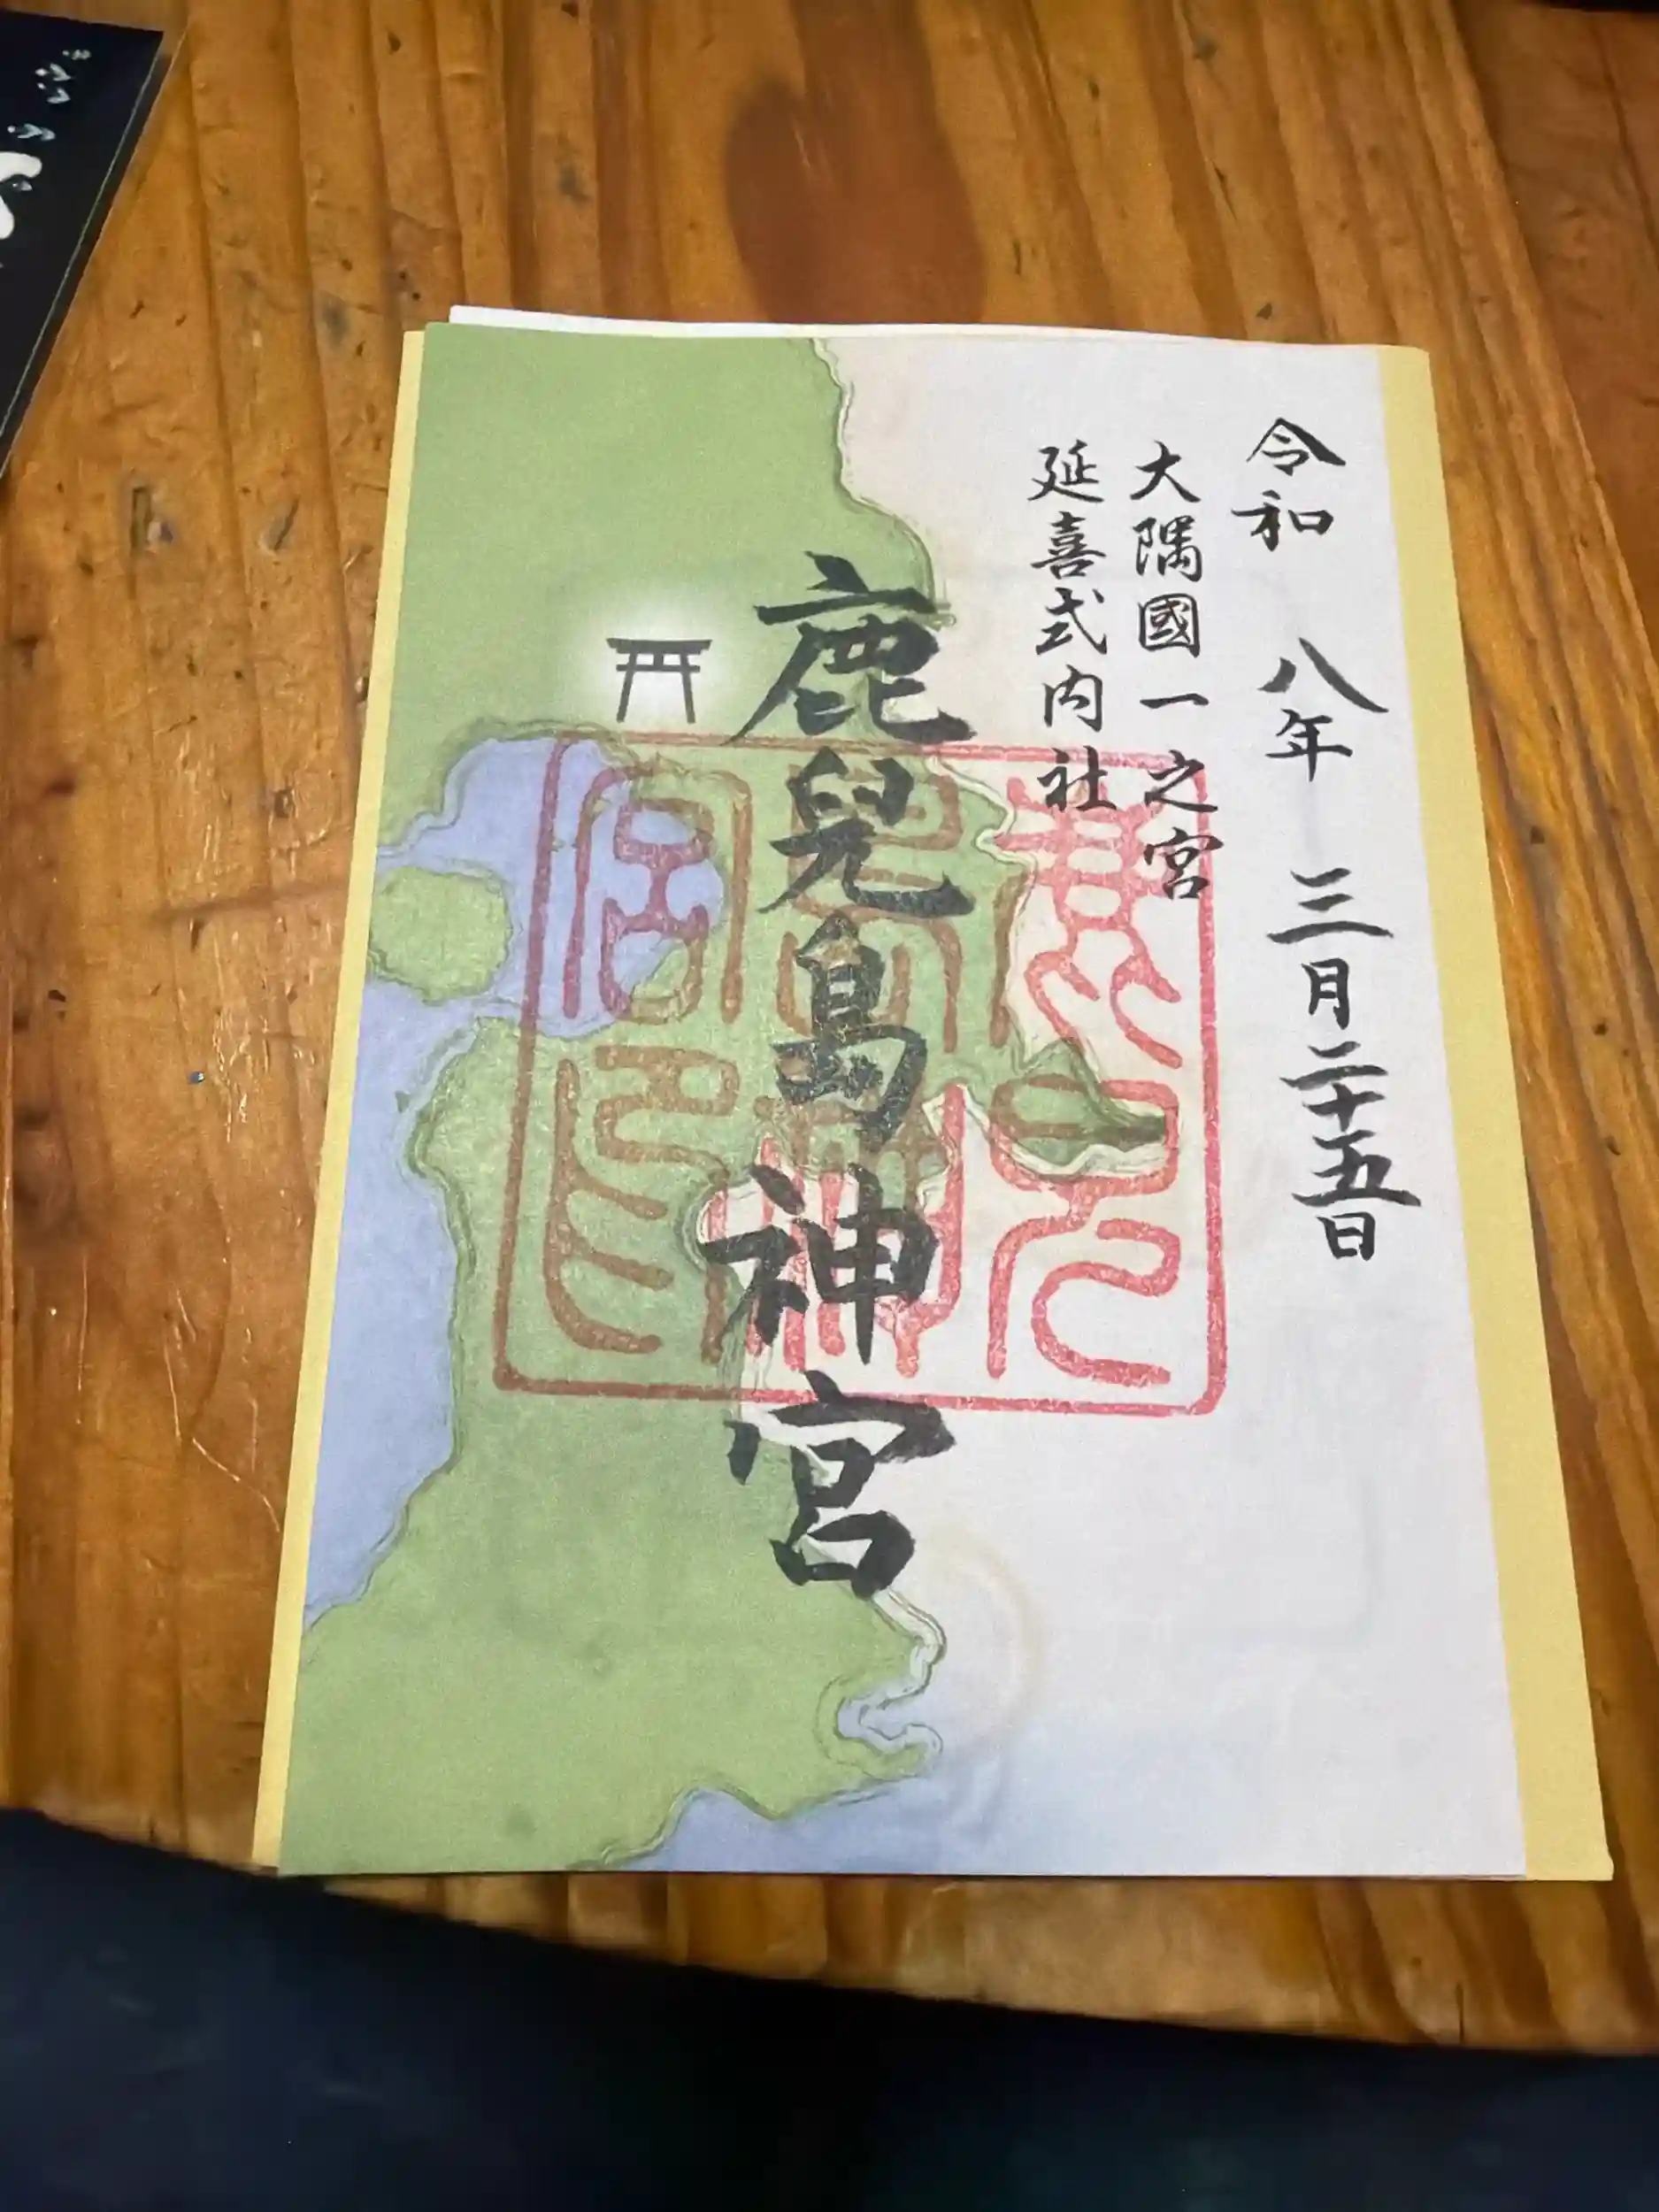 令和八年三月二十五日
大隅國一之宮
延喜式内社
鹿兒島神宮